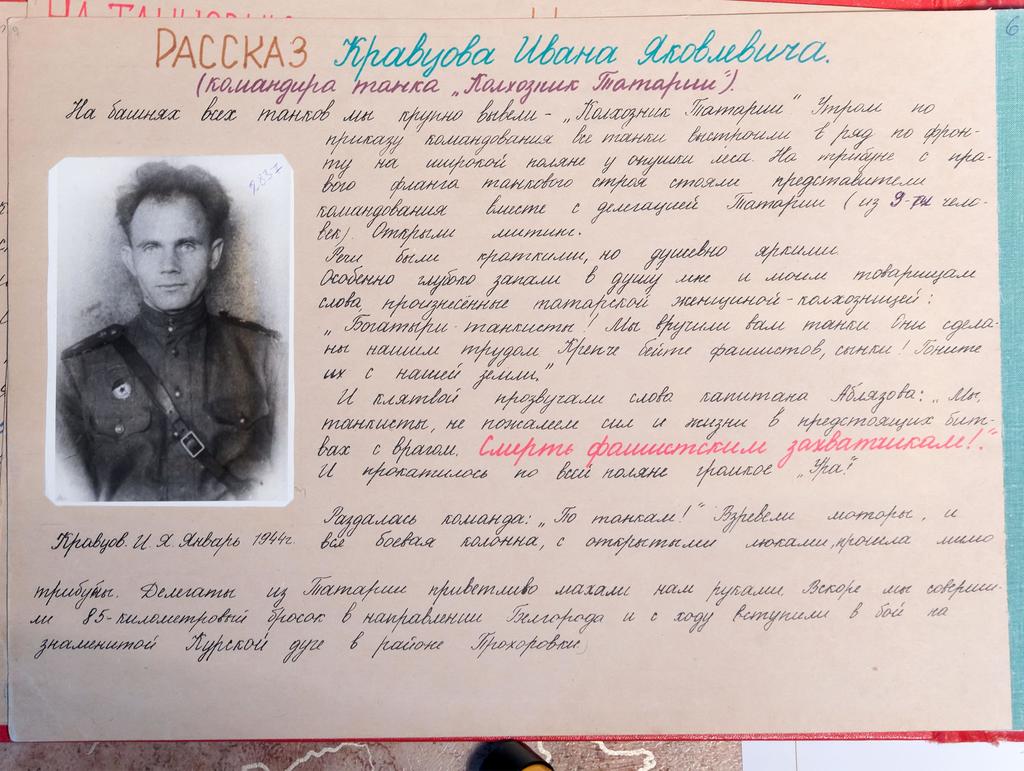 6
РАССКАЗ Кравцова Ивана Яковлевича.
(командира танка „Колхозник Татарии").
На башнях всех танков мы крупно вывели - „Колхозник Татарии" Утром по
приказу командования все танки выстроили в ряд по фрон-
ту на широкой поляне у опушки леса. На трибуне с пра-
вого фланга танкового строя стояли представители
командования вместе с делегацией Татарии (из 9-ти чело-
век). Открыли митинг.
Речи были краткими, но душевно яркими.
Особенно глубоко запали в душу мне и моим товарищам
слова, произнесённые татарской женщиной-колхозницей:
„Богатыри-танкисты! Мы вручили вам танки Они сдела-
ны нашим трудом Крепче бейте фашистов, сынки! Гоните
их с нашей земли."
И клятвой прозвучали слова капитана Аблязова: „Мы,
танкисты, не пожалеем сил и жизни в предстоящих бит-
вах с врагом. Смерть фашистским захватчикам!."
И прокатилось по всей поляне громкое „Ура!"
Раздалась команда: „По танкам!" Взревели моторы, и
вся боевая колонна, с открытыми люками, прошла мимо
Кравцов. И. Я. Январь 1944г.
трибуны. Делегаты из Татарии приветливо махали нам руками Вскоре мы соверши-
ли 85-километровый бросок в направлении Белгорода и с ходу вступили в бой на
знаменитой Курской дуге в районе Прохоровки.